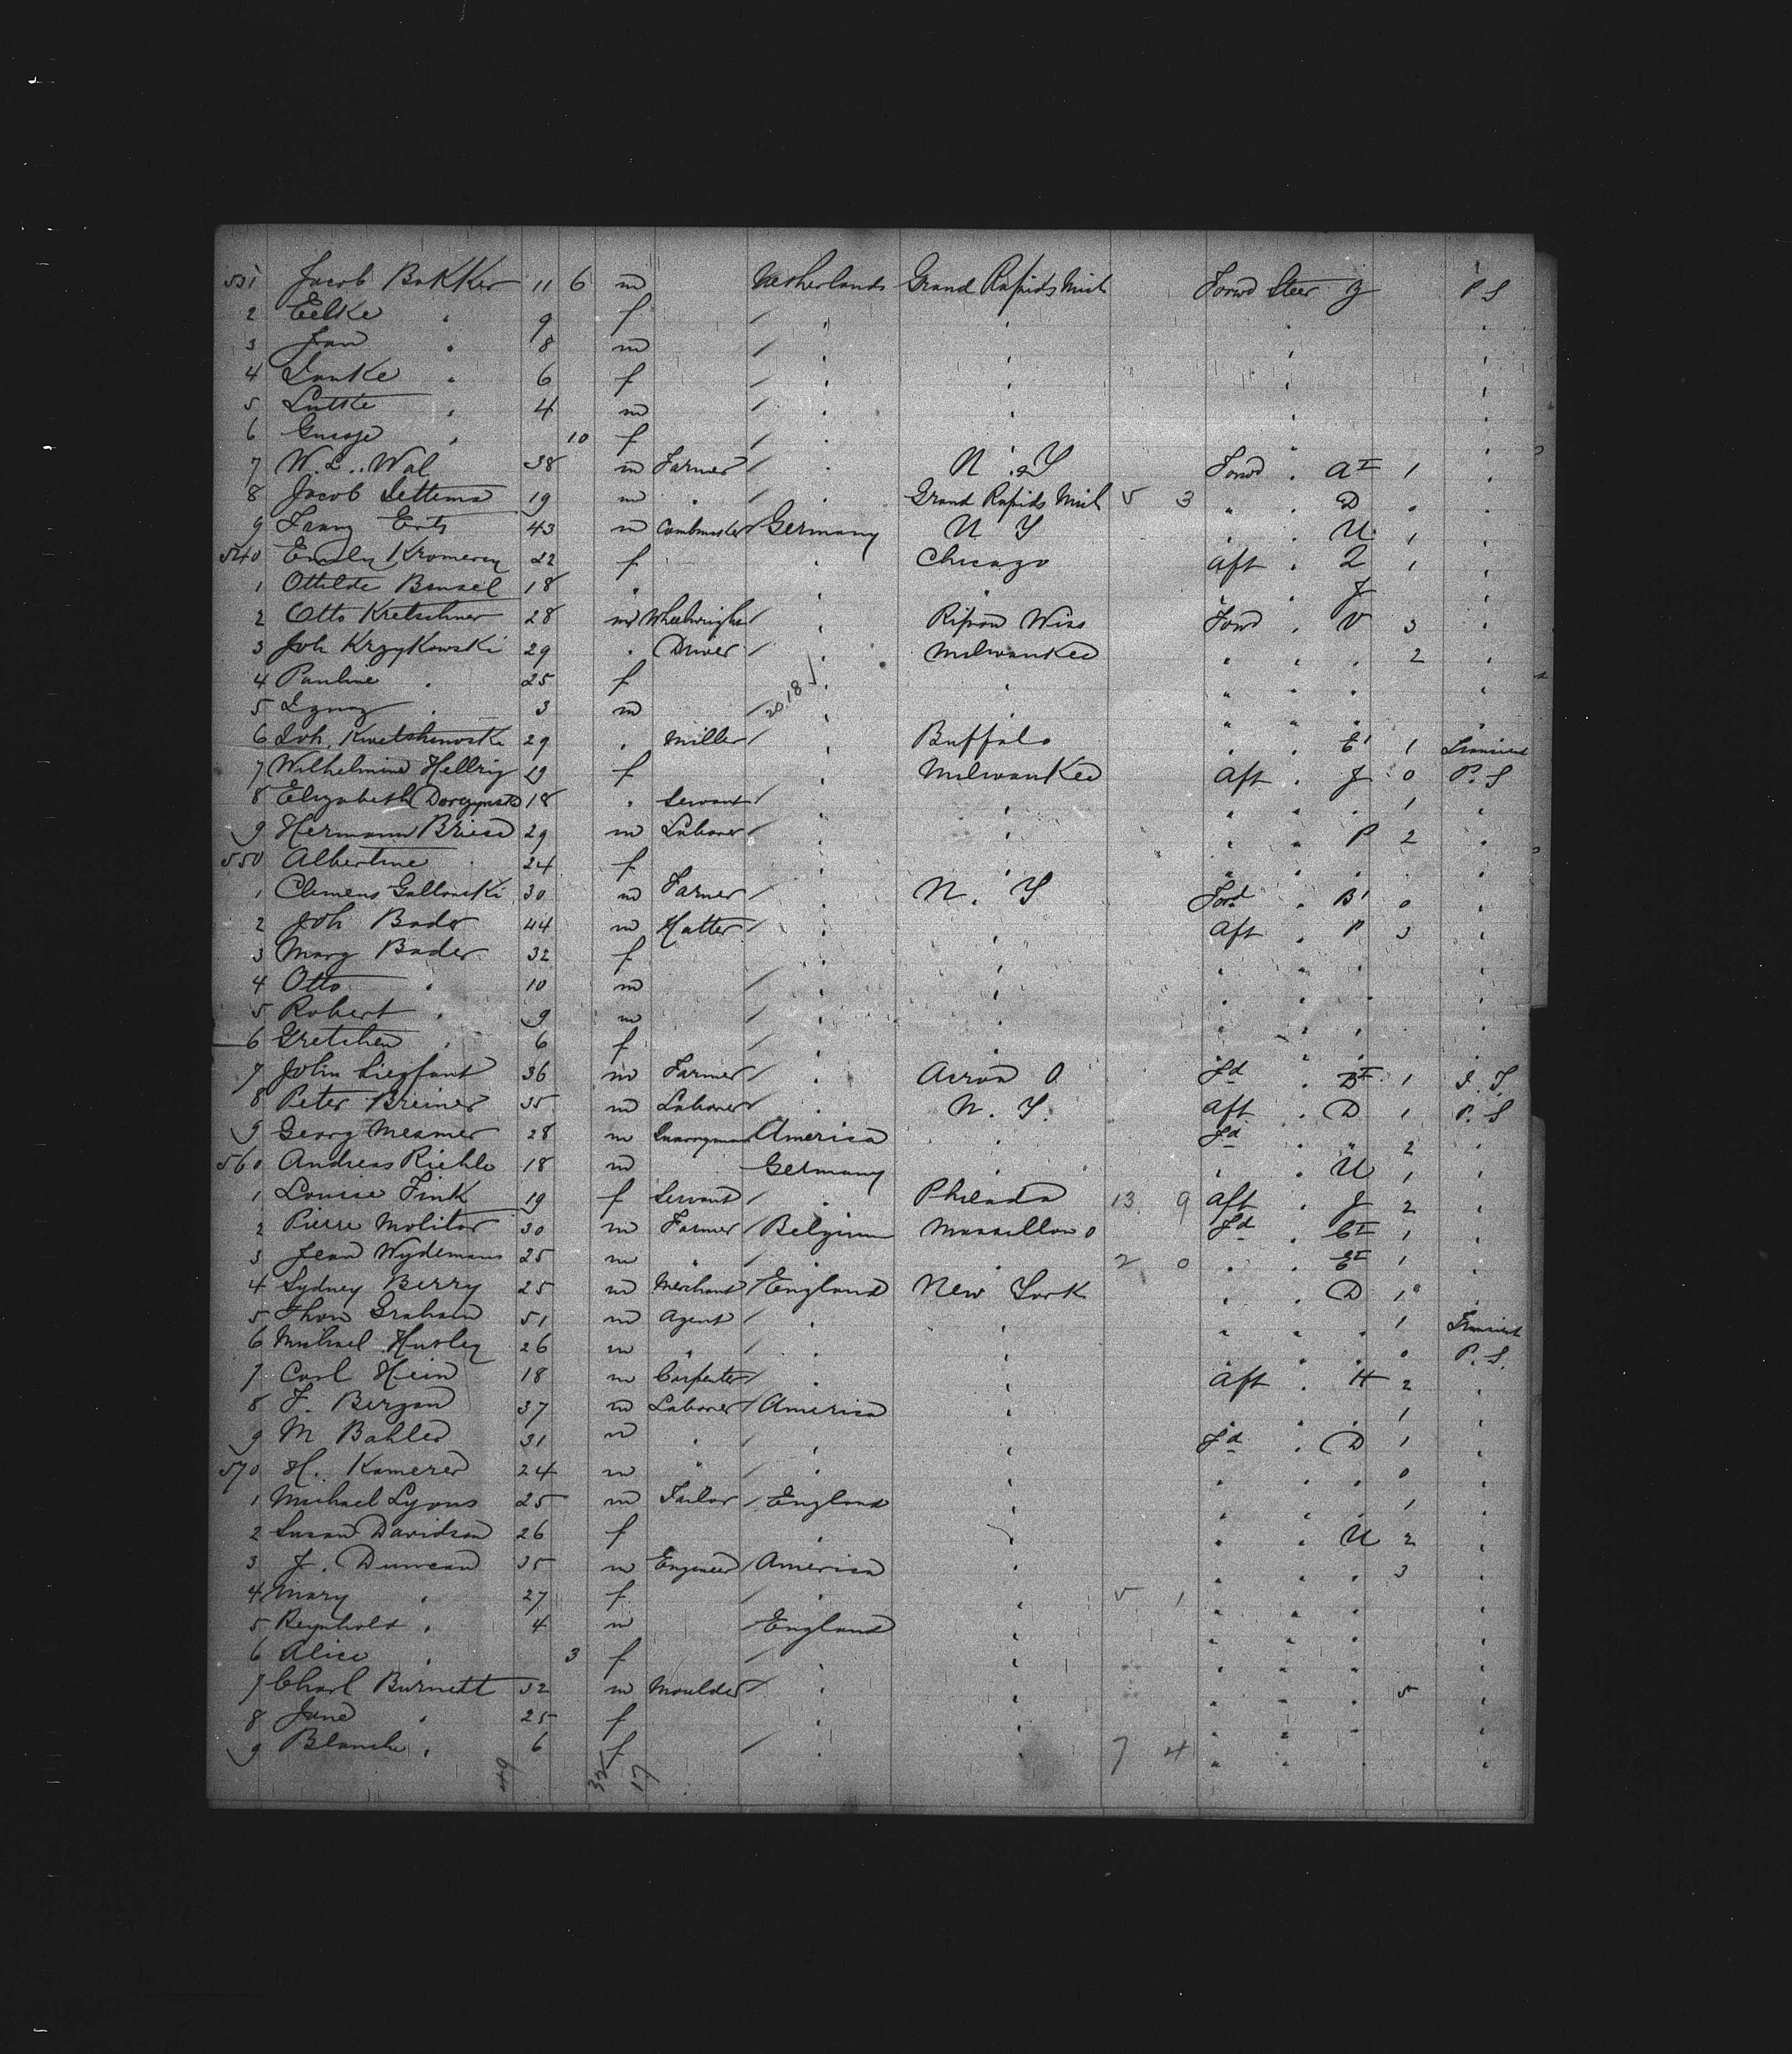 531 Jacob Bakker 11 6 m Netherlands Grand Rapids Mich Forwd Steer P S
2 Eelke " 9 f / " " " "
3 Jan " 8 m / " " " "
4 " 6 f / " " " "
5 " 4 m / " " " "
6 " 10 f / " " " "
7 W. L. Wal 38 m Farmer / " N. Y Forwd " A I 1 "
8 Jacob Settema 19 m " / " Grand Rapids Mich 5 3 " " D " "
9 Franz 43 m Germany N Y " " U 1 "
540 22 f " Chicago Aft " 2 1 "
1 Ottilde 18 " " " " " J "
2 Otto Kretschmer 28 m Wheelwright / " Ripon Wiss Forwd " V 3 "
3 Joh Krzykowski 29 " Driver / " Milwaukee " " " 2 "
4 Pauline " 25 f 20.18 " " " " " "
5 Ignaz " 3 m / " " " " " "
6 Joh. 29 " Miller / " Buffalo " " E' 1 Transient
7 Wilhelmine Hellrig 19 f " Milwaukee Aft " J 0 P. S
8 Elizabeth 18 " Servant / " " " " " 1 "
9 Hermann Briese 29 m Laborer / " " " " P 2 "
550 Albertine " 24 f " " " " " "
1 Clemens 30 m Farmer / " N. Y Ford " B' 0 "
2 Joh Bader 44 m Hatter / " " Aft " P 3 "
3 Marg Bader 32 f " " " " " "
4 Otto " 10 m / " " " " " "
5 Robert " 9 m / " " " " " "
6 Gretchen " 6 f / " " " " " "
7 John 36 m Farmer / " Acron O Fd " B I 1
8 Peter Breiner 35 m Laborer / " N. Y. Aft " D 1 P. S
9 Georg Mesmer 28 m Quarryman America " Fd " " 2 "
560 Andreas Riehle 18 m Germany " " " U 1 "
1 Louise Fink 19 f Servant / " Philada 13 9 Aft " J 2 "
2 Pierre Molitor 30 m Farmer / Belgium Massillon O Fd " C I 1 "
3 Jean Wydemans 25 m " / " " 2 0 " " E I 1 "
4 Sydney Berry 25 m Merchant / England New York " " D 1 "
5 Thom Graham 51 m Agent / " " " " " 1 Transient
6 Michael Hurley 26 m " / " " " " " 0 P. S.
7 Carl Hein 18 m Carpenter / " " Aft " H 2 "
8 F. Bergan 37 m Laborer / America " " " " 1 "
9 M Bahler 31 m " / " " Fd " D 1 "
570 H. Kamerer 24 m " / " " " " " 0 "
1 Michael Lyons 25 m Tailor / England " " " " 1 "
2 Susan Davidson 26 f " " " " U 2 "
3 J. Duncan 35 m Engineer / America " " " " 3 "
4 Mary " 27 f / " " 5 1 " " " "
5 Reynhold " 4 m / England " " " " "
6 Alice " 3 f / " " " " " "
7 Charl Burnett 32 m Moulder / " " " " " 5 "
8 Jane " 25 f " " " " " "
9 Blanche " 6 f / " " 7 4 " " "
49 32 17